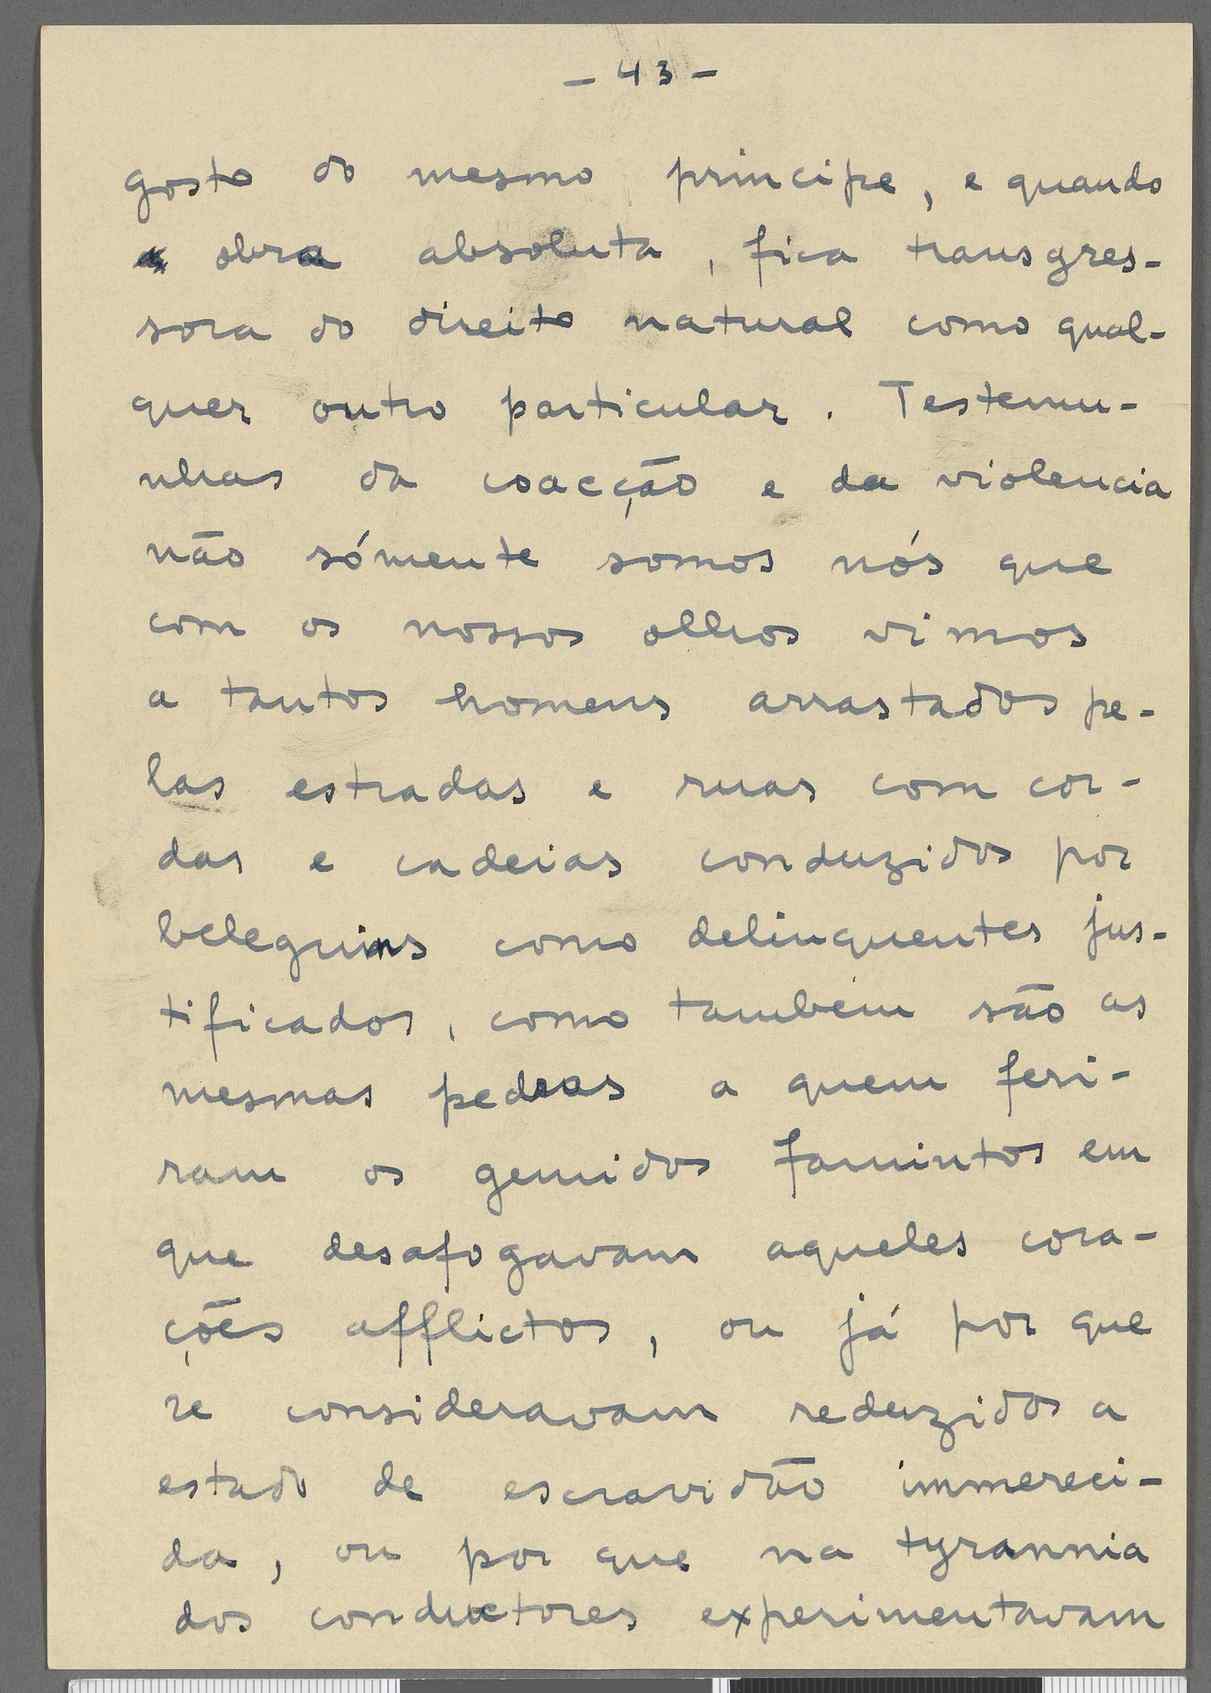 - 43 -
gosto do mesmo principe, e quando
obra absoluta, fica transgres-
sora do direito natural como qual-
quer outro particular. Testemu-
nhas da coacção e da violencia
não sómente somos nós que
com os nossos olhos vimos
a tantos homens arrastados pe-
las estradas e ruas com cor-
das e cadeias conduzidos por
beleguins como delinquentes jus-
tificados, como também são as
mesmas pedras a quem feri-
ram os gemidos famintos em
que desafogavam aqueles cora-
ções afflictos, ou já por que
se consideravam reduzidos a
estado de escravidão immereci-
da, ou por que na tyrannia
dos conductores experimentavam